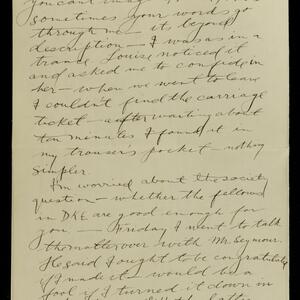 you can't imag
sometimes your words go
through me – it beyond
description – I was as in a
trance Louise noticed it
and asked me to confide in
her – when we went to leave
I couldn't find the carriage
ticket – after waiting about
ten minutes I found it in
my trouser's pocket – nothing
simpler.
I'm worried about the society
question – whether the fellows
in DKE are good enough for
you — Friday I went to talk
the matter over with Mr. Seymour.
He said I ought to be congratulated
if I made it – would be a
fool if I turned it down in